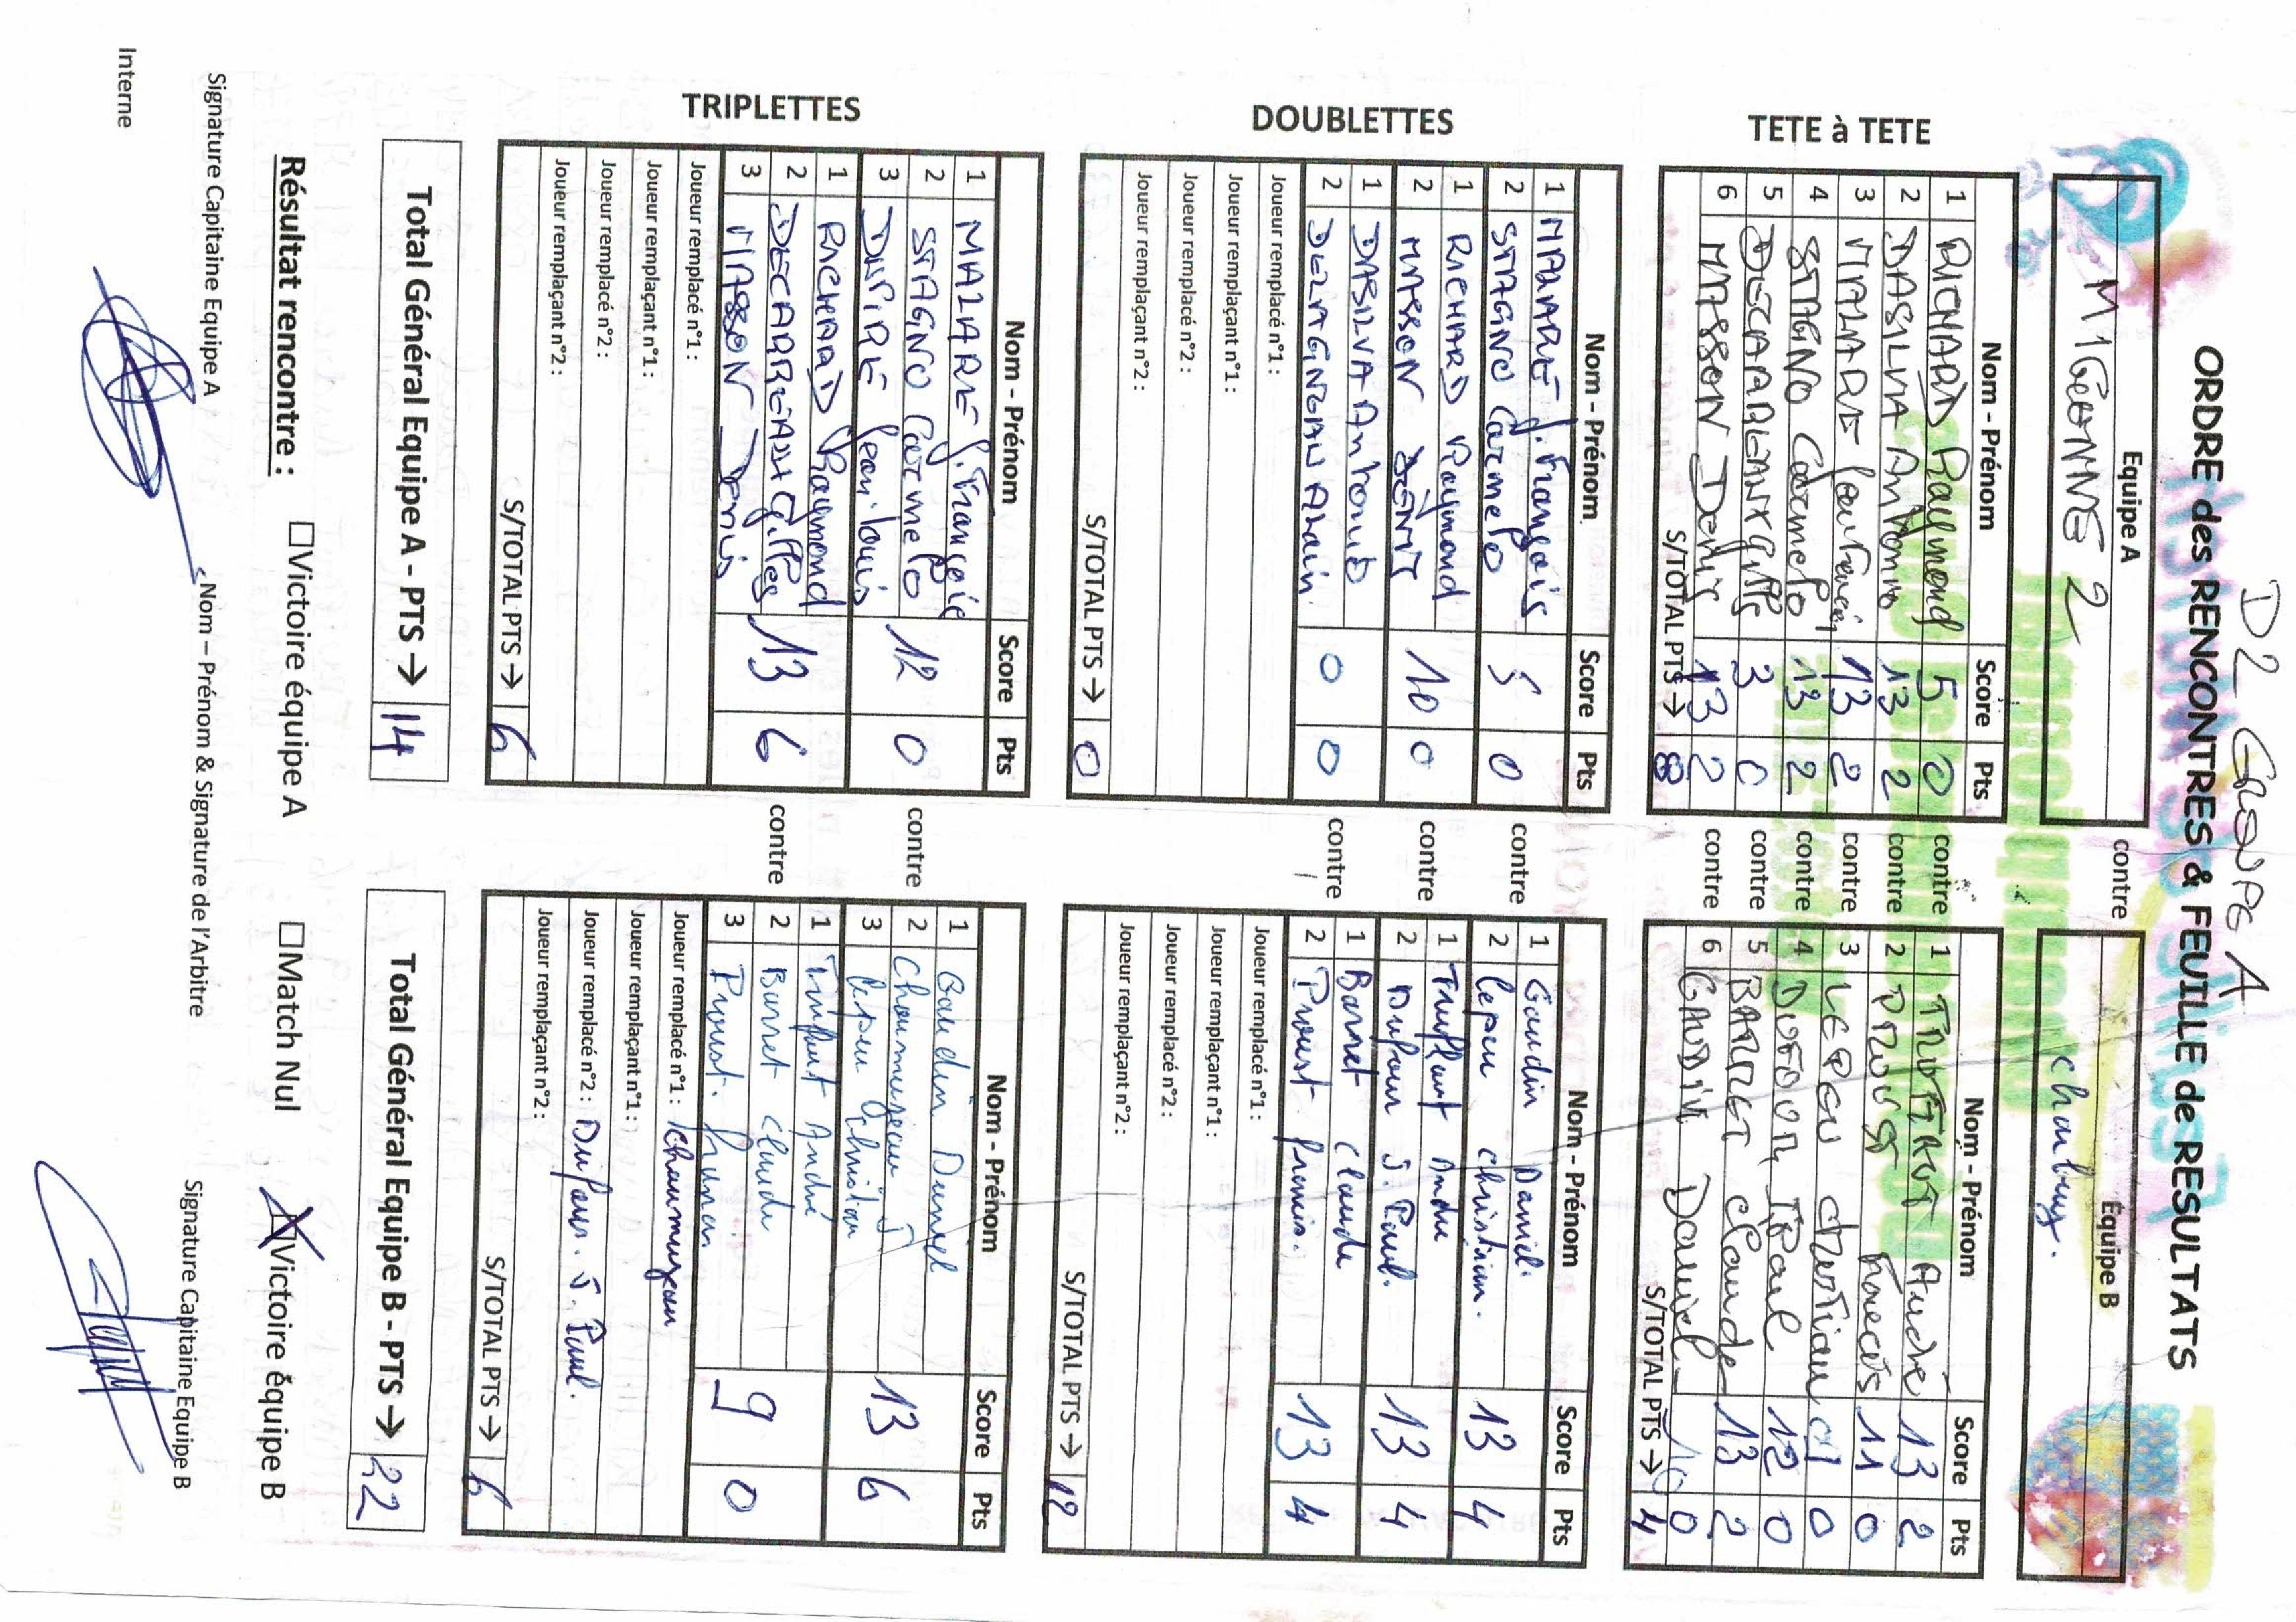 D2 GROUPE A
ORDRE des RENCONTRES & FEUILLE de RESULTATS
Equipe A contre Equipe B
MIGEONNE 2 Charbuy.
Nom - Prénom Score Pts Nom - Prénom Score Pts
TETE à TETE
1 RICHARD Raymond 5 0 contre 1 TRUFFAUT André 13 2
2 DASILVA Antonio 13 2 contre 2 PROUST Francis 11 0
3 MALARE Jean François 13 2 contre 3 LEPEU Christian 0
4 STAGNO Carmelo 13 2 contre 4 DUFOUR J Paul 12 0
5 DECARREAUX Gilles 3 0 contre 5 BARRET Claude 13 2
6 MASSON Denis 13 2 contre 6 GAUDIN Daniel 10 0
S/TOTAL PTS → 8 S/TOTAL PTS → 4
DOUBLETTES
Nom - Prénom Score Pts Nom - Prénom Score Pts
1 MALARE J. François 5 0 contre 1 Gaudin Daniel. 13 4
2 STAGNO Carmelo 2 Lepeu Christian.
1 RICHARD Raymond 10 0 contre 1 Truffaut André 13 4
2 MASSON DENIS 2 Dufour J. Paul.
1 DASILVA Antonio 0 0 contre 1 Barret Claude 13 4
2 DELAGNEAU Alain. 2 Proust francis.
Joueur remplacé n°1 : Joueur remplacé n°1 :
Joueur remplaçant n°1 : Joueur remplaçant n°1 :
Joueur remplacé n°2 : Joueur remplacé n°2 :
Joueur remplaçant n°2 : Joueur remplaçant n°2 :
S/TOTAL PTS → 0 S/TOTAL PTS → 12
TRIPLETTES
Nom - Prénom Score Pts Nom - Prénom Score Pts
1 MALARE J. François 12 0 contre 1 Gaudin Daniel 13 6
2 STAGNO Carmelo 2 Chaumuzeau J.
3 Jean-Louis 3 Lepeu Christian
1 RICHARD Raymond 13 6 contre 1 Truffaut André 9 0
2 DECARREAUX Gilles 2 Barret Claude
3 MASSON Denis 3 Proust. francis.
Joueur remplacé n°1 : Joueur remplacé n°1 : Chaumuzeau
Joueur remplaçant n°1 : Joueur remplaçant n°1 :
Joueur remplacé n°2 : Joueur remplacé n°2 : Dufour. J. Paul.
Joueur remplaçant n°2 : Joueur remplaçant n°2 :
S/TOTAL PTS → 6 S/TOTAL PTS → 6
Total Général Equipe A - PTS → 14 Total Général Equipe B - PTS → 22
Résultat rencontre : □Victoire équipe A □Match Nul □Victoire équipe B
Signature Capitaine Equipe A Nom – Prénom & Signature de l'Arbitre Signature Capitaine Equipe B
Interne